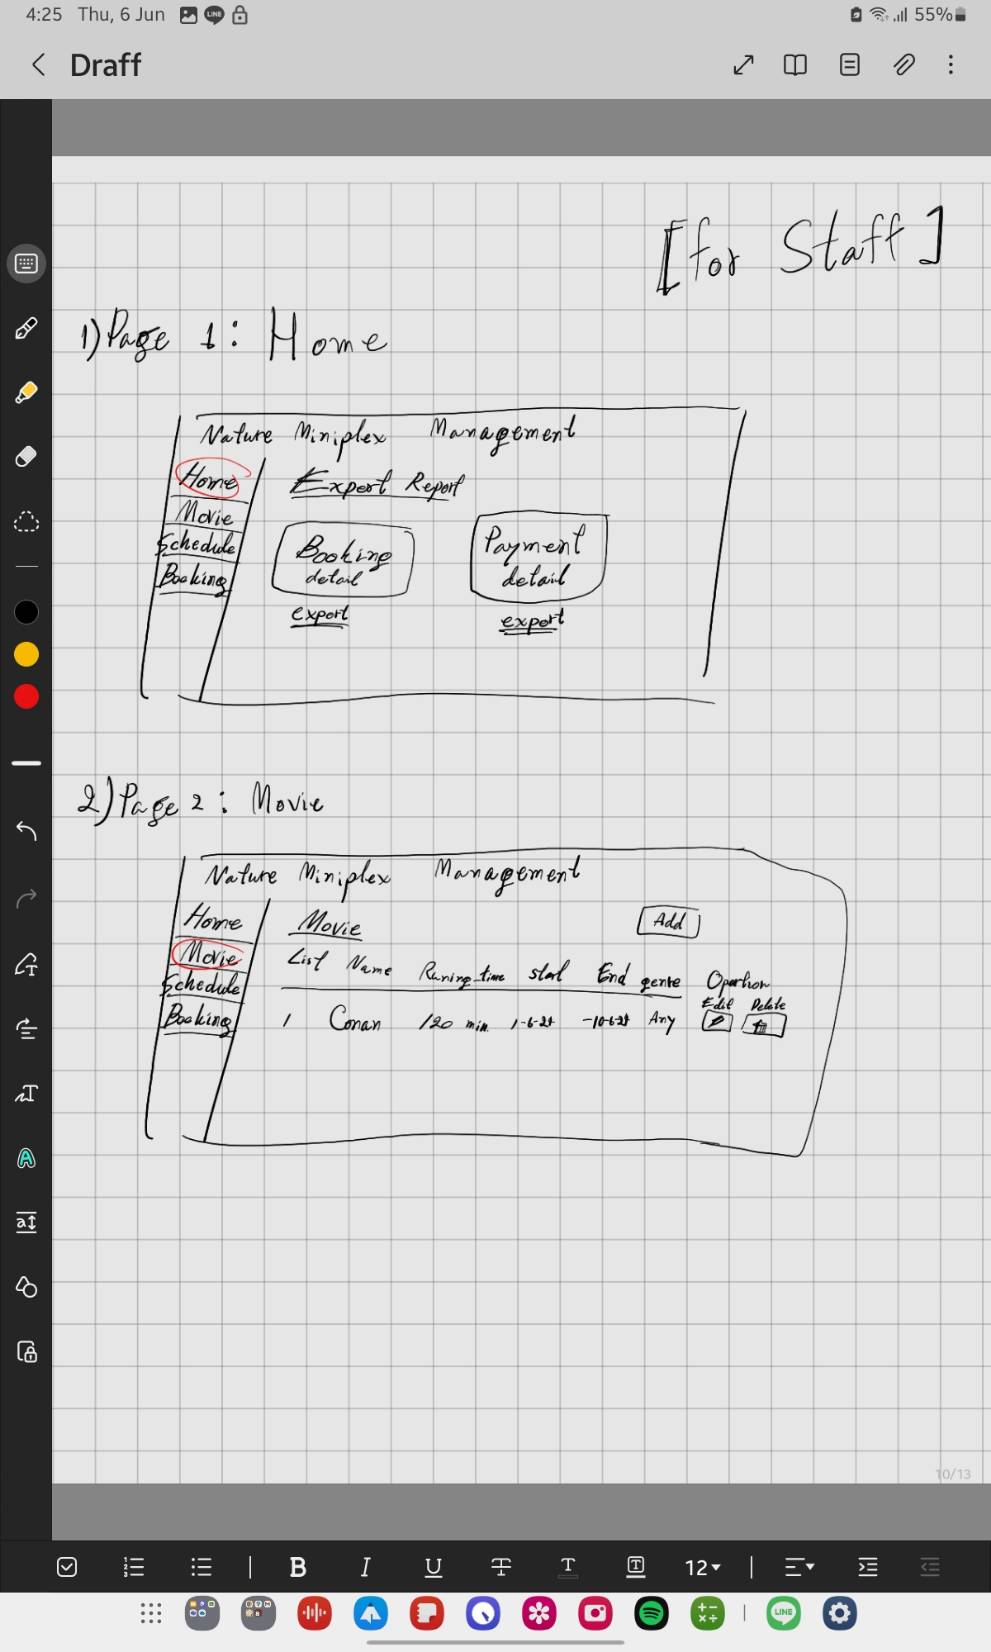 4:25 Thu, 6 Jun LINE 55%
Draff
[for Staff]
1) Page 1 : Home
Nature Miniplex Management
Home
Export Report
Movie
Schedule
Booking
Booking detail
export
Payment detail
export
2) Page 2 : Movie
Nature Miniplex Management
Home
Movie
Schedule
Booking
Movie
Add
List Name Runing time start End genre Oparthon
Edit Delete
1 Conan 120 min 1-6-24 -10-6-24 Any
10/13
B I U T T T 12
LINE